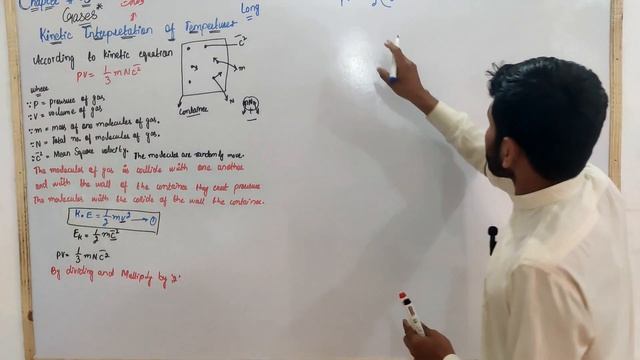 Chapter # 3
GASES*
Long
Kinetic Intrpretation of Tempertures
According to kinetic equation
PV = 1/3 m N c̄²
where
∵ P = Pressure of gas.
∵ V = volume of gas
∵ m = mass of one molecules of gas.
∵ N = Total no. of molecules of gas.
∵ c̄² = Mean Square velocity. The molecules are randomly move
c̄²
m
N
Container
The molecules of gas is collide with one another
and with the wall of the container they exert pressure
The molecules with the colide of the wall the container.
K.E = 1/2 m v² → ①
Eₖ = 1/2 m c̄²
PV = 1/3 m N c̄²
By dividing and Multiply by '2'